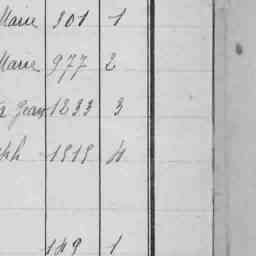 Marie 301 1
Marie 977 2
Jean 1233 3
ph 1515 4
149 1